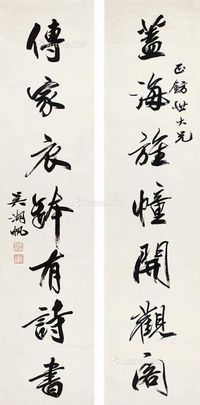 蓋海旌幢開觀閣
正餘世大兄
傳家衣缽有詩書
吳湖帆